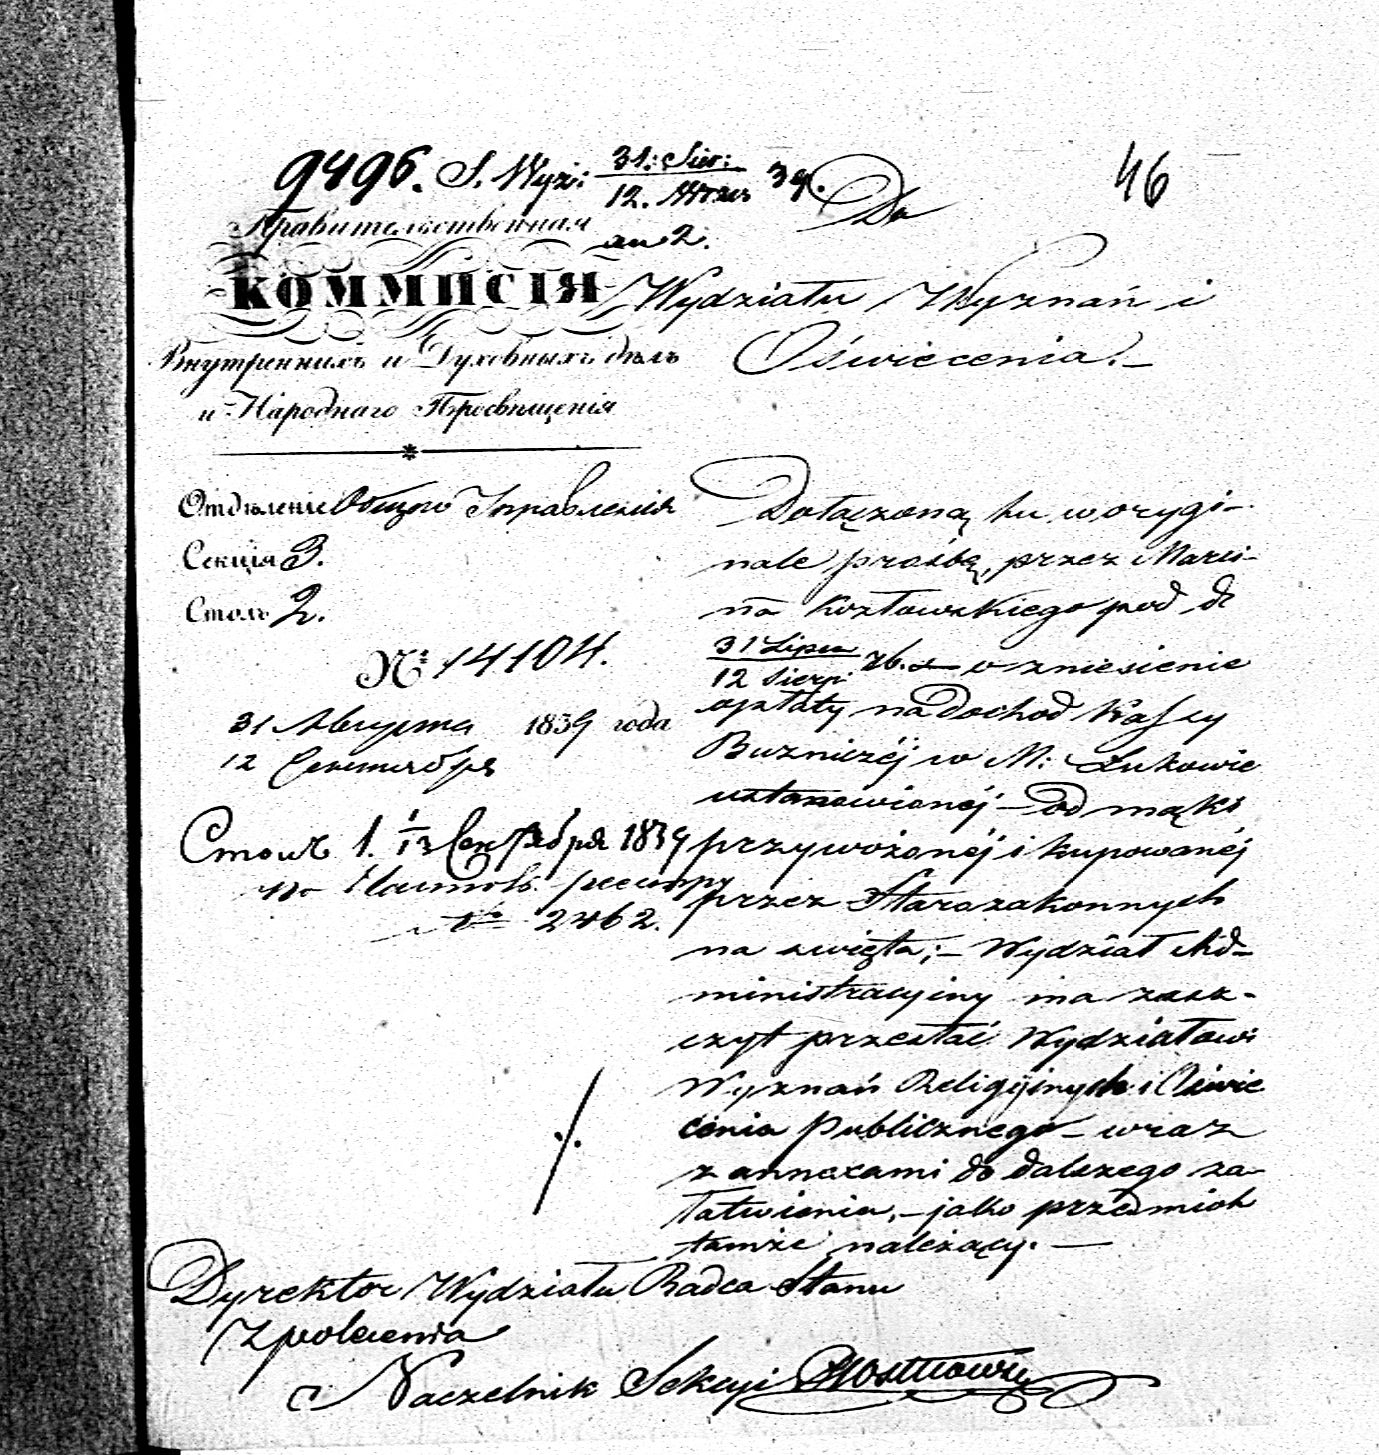 9496. S. Wyz: 31: Sier: / 12. Wrześ 39.
46
Правительственная
ad 2.
КОММИСІЯ
Внутреннихъ и Духовныхъ дѣлъ
и Народнаго Просвѣщенія
Отдѣленіе Общаго Управленія
Секція 3.
Столъ 2.
№ 14104.
31 Августа 1839 года
12 Сентября
Столъ 1. 1/13 Сентября 1839
по Настол. реестру
№ 2462.
Do
Wydziału Wyznań i
Oświecenia.
Dołączoną tu w orygi-
nale prośbę, przez Marci-
na Kozłowskiego pod d
31 Lipca / 12 Sierp: rb. o zniesienie
opłaty na Dochód Kassy
Bużniczéj w M: Łukowie
ustanowionéj od mąki
przywożonéj i kupowanéj
przez Starozakonnych
na święta; Wydział Ad-
ministracyiny ma zasz-
czyt przesłać Wydziałowi
Wyznań Religijnych i Oświe
cenia Publicznego wraz
z annexami do dalszego za-
łatwienia, jako przedmiot
tamże należący.
Dyrektor Wydziału Radca Stanu
Z polecenia
Naczelnik Sekcyi